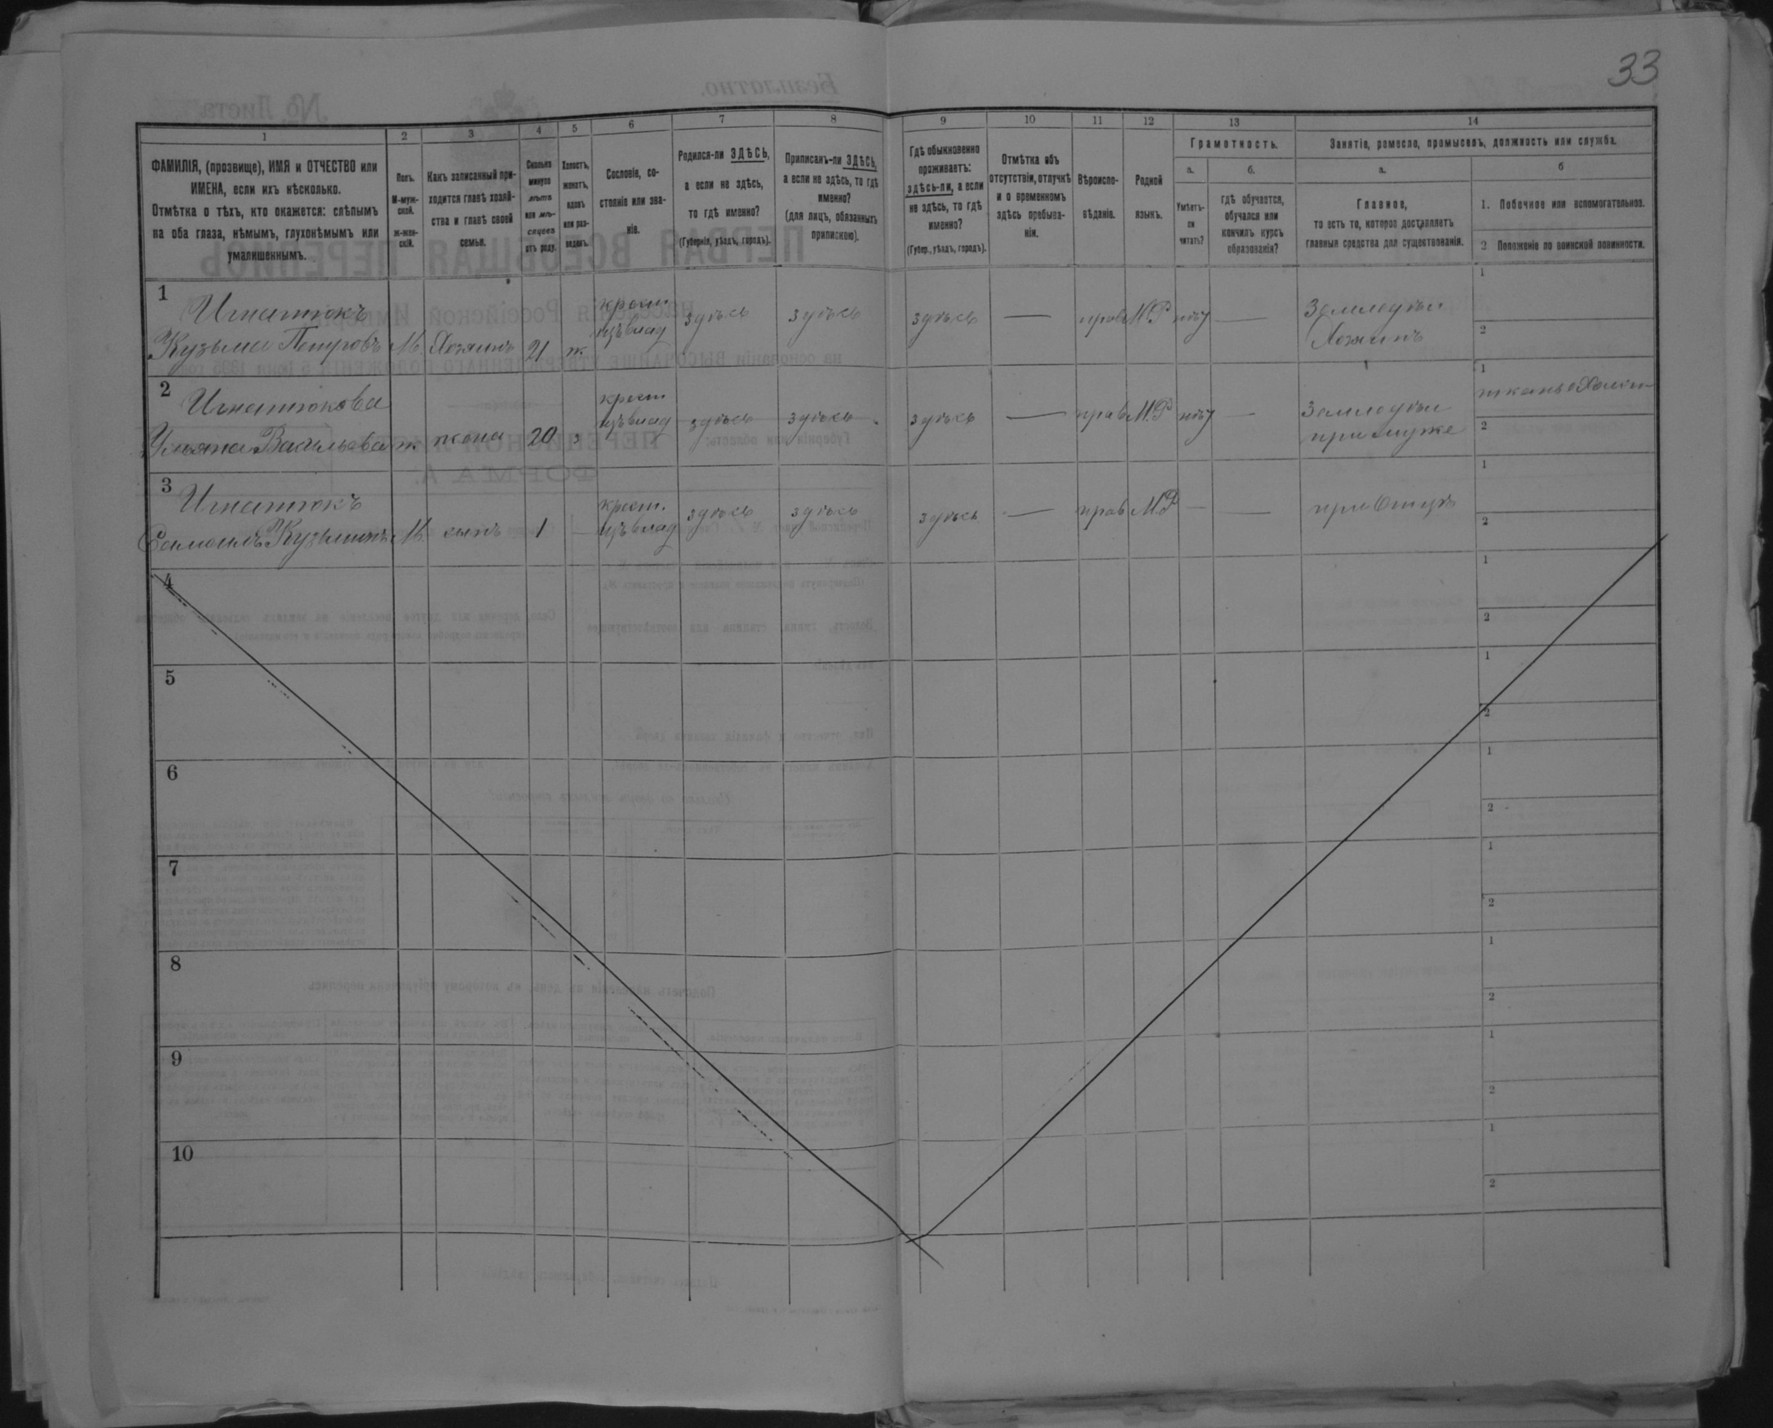 33
1
2
3
4
5
6
7
8
9
10
11
12
13
14
ФАМИЛІЯ, (прозвище), ИМЯ и ОТЧЕСТВО или
ИМЕНА, если ихъ нѣсколько.
Отмѣтка о тѣхъ, кто окажется: слѣпымъ
на оба глаза, нѣмымъ, глухонѣмымъ или
умалишеннымъ.
Полъ.
М-муж-
ской.
Ж-жен-
скій.
Какъ записанный при-
ходится главѣ хозяй-
ства и главѣ своей
семьи.
Сколько
минуло
лѣтъ
или мѣ-
сяцевъ
отъ роду.
Холостъ,
женатъ,
вдовъ
или раз-
веденъ.
Сословіе, со-
стояніе или зва-
ніе.
Родился-ли ЗДѢСЬ,
а если не здѣсь,
то гдѣ именно?
(Губернія, уѣздъ, городъ).
Приписанъ-ли ЗДѢСЬ,
а если не здѣсь, то гдѣ
именно?
(для лицъ, обязанныхъ
припискою).
Гдѣ обыкновенно
проживаетъ:
здѣсь-ли, а если
не здѣсь, то гдѣ
именно?
(Губер., уѣздъ, городъ).
Отмѣтка объ
отсутствіи, отлучкѣ
и о временномъ
здѣсь пребыва-
ніи.
Вѣроиспо-
вѣданіе.
Родной
языкъ.
Грамотность.
а.
Умѣетъ-
ли
читать?
б.
гдѣ обучается,
обучался или
кончилъ курсъ
образованія?
Занятіе, ремесло, промыселъ, должность или служба.
а.
Главное,
то есть то, которое доставляетъ
главныя средства для существованія.
б
1. Побочное или вспомогательное.
2 Положеніе по воинской повинности.
1
Игнатюкъ
Кузьма Петровъ М. Хозяинъ 21 ж
крест.
изъ влад
здѣсь здѣсь здѣсь — прав М.Р нѣт —
Земледѣл
Хозяинъ
1
2
2
Игнатюкова
Ульяна Васильева ж жена 20 з
крест
изъ влад
здѣсь здѣсь здѣсь — прав М.Р нѣт —
Земледѣл
при мужѣ
1
2
3
Игнатюкъ
Самоилъ Кузьминъ М. сынъ 1 —
крест.
изъ влад
здѣсь здѣсь здѣсь — прав М.Р — —
при Отцѣ
1
2
4
1
2
5
1
2
6
1
2
7
1
2
8
1
2
9
1
2
10
1
2